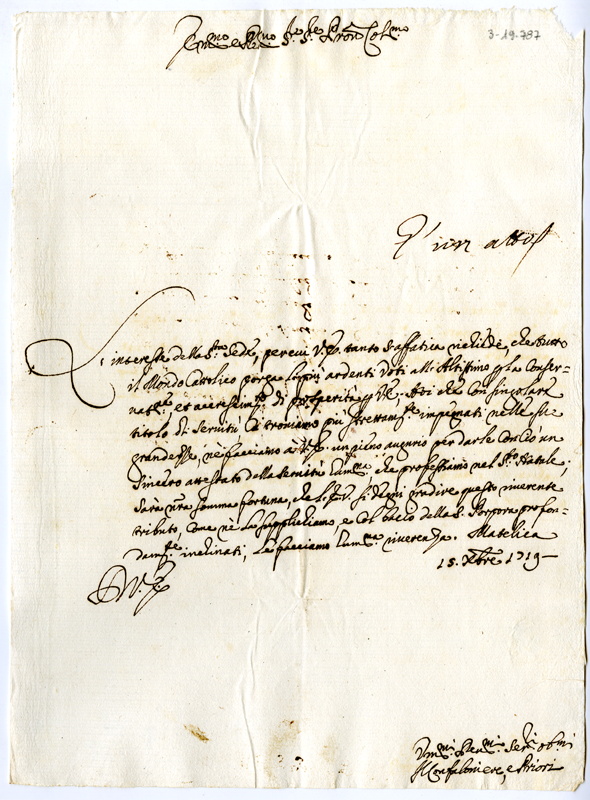 Em̃o e R̃mo Sig.r Sig.r Pron̄ Col.mo
3-19.787
L'interesse della S.ta Sede, per cui V.E. tanto s'affatica richiede, che tutto
il Mondo Cattolico porga li più ardenti Voti all'Altissimo p la Conser-
nat.ne, et accrescim.to di prosperità p V.E. Noi che con singolare
titolo di servitù ci troniamo più strettam.te impegnati nelle sue
grandezze, ne facciamo à V.E. un pieno augurio per darle con ciò un
sincero attestato della servitù hum.ma, che professiamo nel S.to Natale,
sarà n̄ra somma fortuna, che l'E.V. si degni gradire questo riverente
tributo, come ne la supplichiamo, e col bacio della S. Porpora profon-
dam.te inclinati, le facciamo hum.ma riverenza. Matelica
15. Xbre 1719
D. V. E.
Hum.mi Dev.mi Ser.i obmi
Il Confaloniere, e Priori